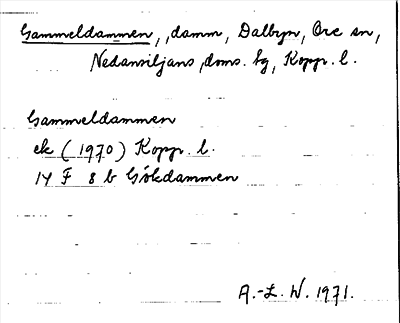 Gammeldammen, damm, Dalbyn, Ore sn,
Nedansiljans doms. hg, Kopp. l.
Gammeldammen
ek (1970) Kopp. l.
14 F 8 b Gökdammen
A.-L. W. 1971.